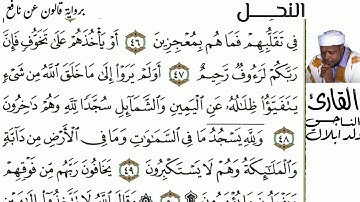 النحل
برواية قالون عن نافع
فِي تَقَلُّبِهِمْ فَمَا هُم بِمُعْجِزِينَ ٤٦ أَوْ يَأْخُذَهُمْ عَلَىٰ تَخَوُّفٍ فَإِنَّ
رَبَّكُمْ لَرَءُوفٌ رَّحِيمٌ ٤٧ أَوَلَمْ يَرَوْا إِلَىٰ مَا خَلَقَ اَللَّهُ مِن شَيْءٍ
يَتَفَيَّؤُاْ ظِلَٰلُهُۥ عَنِ اِلْيَمِينِ وَالشَّمَآئِلِ سُجَّدًا لِّلَّهِ وَهُمْ دَٰخِرُونَ
٤٨ وَلِلَّهِ يَسْجُدُ مَا فِي السَّمَٰوَٰتِ وَمَا فِي اِلْأَرْضِ مِن دَآبَّةٍ
وَالْمَلَٰٓئِكَةُ وَهُمْ لَا يَسْتَكْبِرُونَ ٤٩ يَخَافُونَ رَبَّهُم مِّن فَوْقِهِمْ
القارئ
الناجي
ولد ابلال